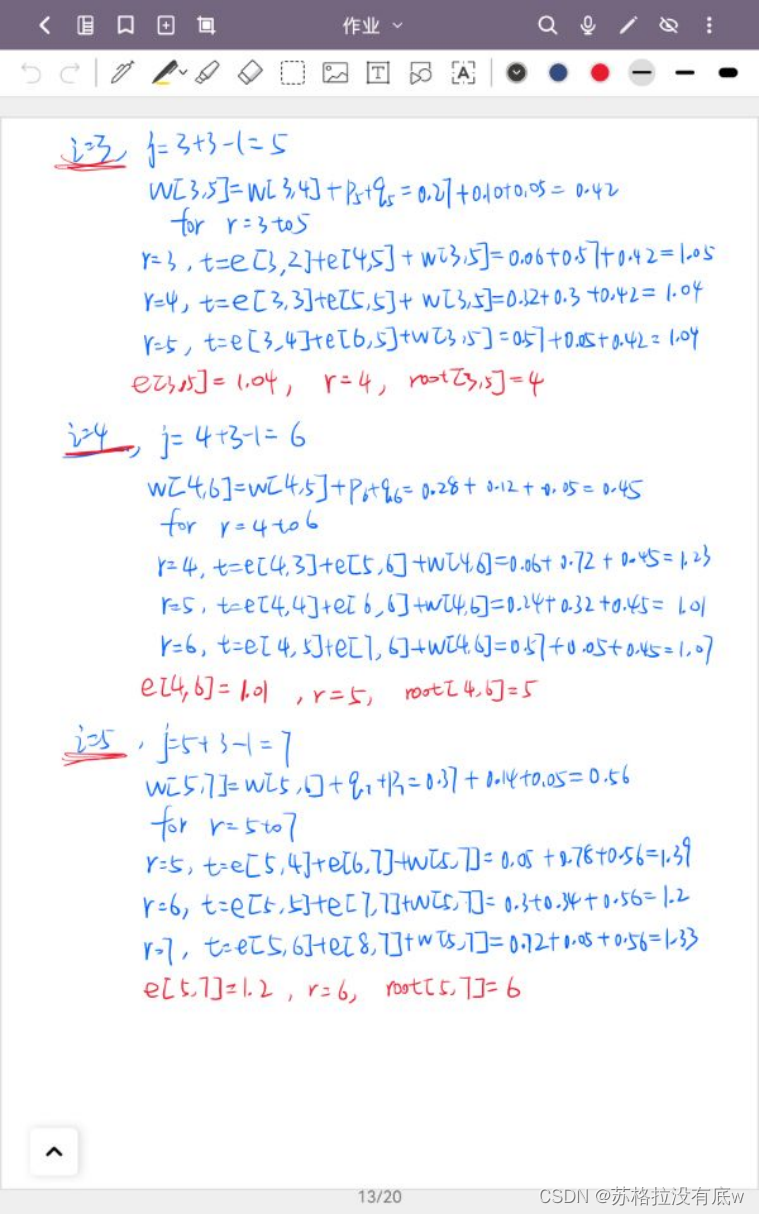 作业
i=3, j=3+3-1=5
w[3,5]=w[3,4]+p5+q5=0.27+0.10+0.05=0.42
for r=3 to 5
r=3, t=e[3,2]+e[4,5]+w[3,5]=0.06+0.57+0.42=1.05
r=4, t=e[3,3]+e[5,5]+w[3,5]=0.32+0.3+0.42=1.04
r=5, t=e[3,4]+e[6,5]+w[3,5]=0.57+0.05+0.42=1.04
e[3,5]=1.04, r=4, root[3,5]=4
i=4, j=4+3-1=6
w[4,6]=w[4,5]+p6+q6=0.28+0.12+0.05=0.45
for r=4 to 6
r=4, t=e[4,3]+e[5,6]+w[4,6]=0.06+0.72+0.45=1.23
r=5, t=e[4,4]+e[6,6]+w[4,6]=0.24+0.32+0.45=1.01
r=6, t=e[4,5]+e[7,6]+w[4,6]=0.57+0.05+0.45=1.07
e[4,6]=1.01, r=5, root[4,6]=5
i=5, j=5+3-1=7
w[5,7]=w[5,6]+q7+p7=0.37+0.14+0.05=0.56
for r=5 to 7
r=5, t=e[5,4]+e[6,7]+w[5,7]=0.05+0.78+0.56=1.39
r=6, t=e[5,5]+e[7,7]+w[5,7]=0.3+0.34+0.56=1.2
r=7, t=e[5,6]+e[8,7]+w[5,7]=0.72+0.05+0.56=1.33
e[5,7]=1.2, r=6, root[5,7]=6
13/20
CSDN @苏格拉没有底w